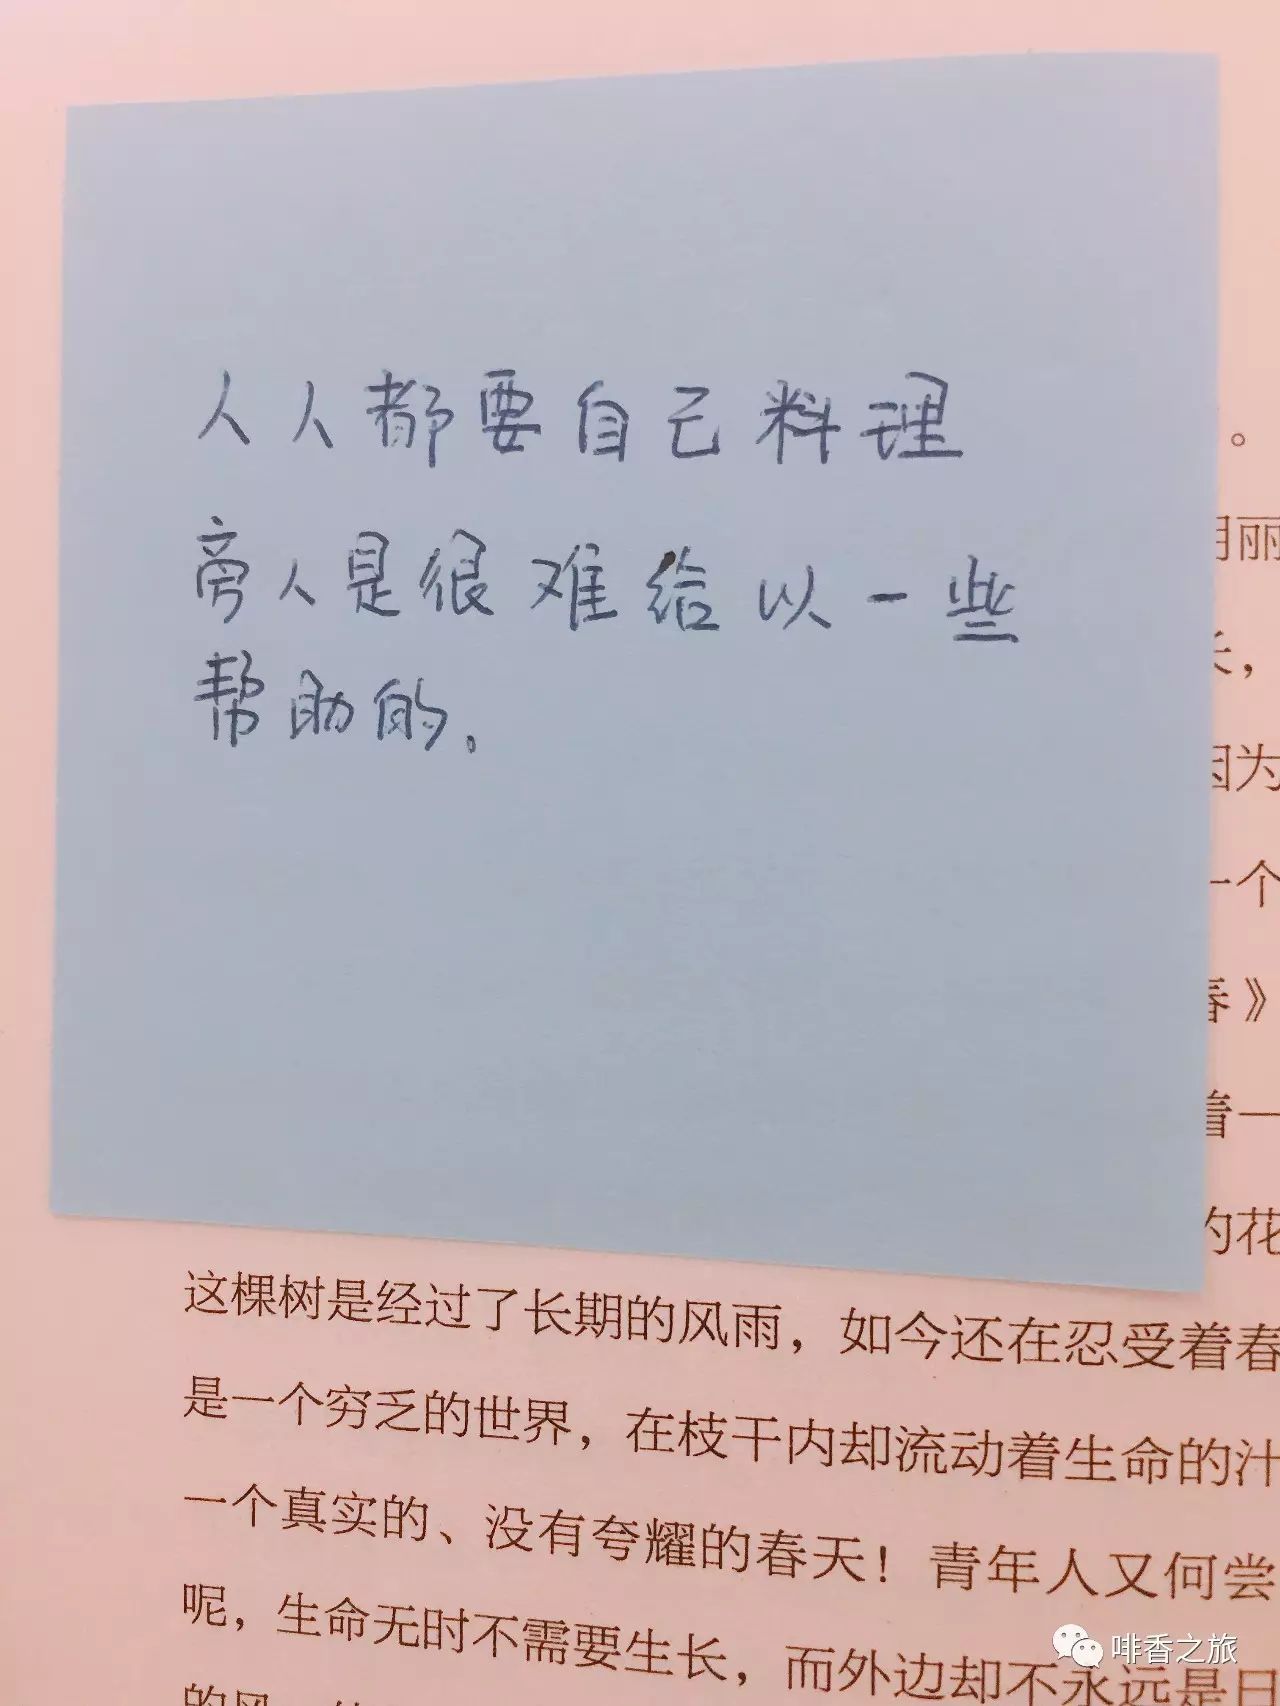 人人都要自己料理
旁人是很难给以一些
帮助的.
。
丽
长,
因为
一个
春》
着一
的花
这棵树是经过了长期的风雨，如今还在忍受着春
是一个穷乏的世界，在枝干内却流动着生命的汁
一个真实的、没有夸耀的春天！青年人又何尝
呢，生命无时不需要生长，而外边却不永远是日
的风
啡香之旅